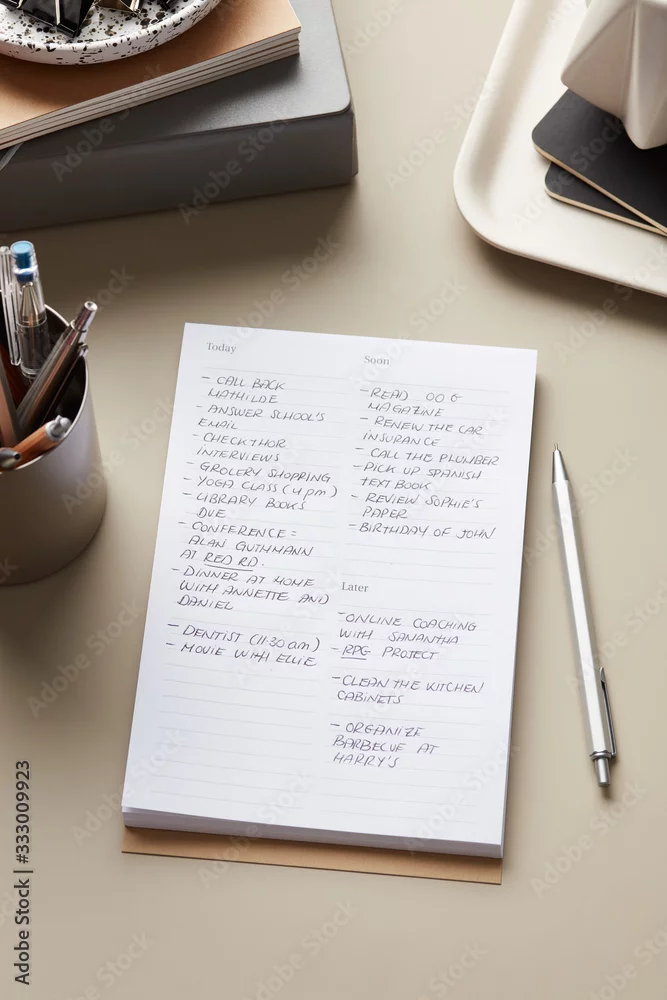 Today
- CALL BACK
MATHILDE
- ANSWER SCHOOL'S
EMAIL
- CHECK THOR
INTERVIEWS
- GROLERY SHOPPING
- YOGA CLASS (4 pm)
- LIBRARY BOOKS
DUE
- CONFERENCE =
ALAN GUTHMANN
AT RED RD.
- DINNER AT HOME
WITH ANNETTE AND
DANIEL
- DENTIST (11:30 am)
- MOVIE WITH ELLIE
Soon
- READ OO G
MAGAZINE
- RENEW THE CAR
INSURANCE
- CALL THE PLUMBER
- PICK UP SPANISH
TEXT BOOK
- REVIEW SOPHIE'S
PAPER
- BIRTHDAY OF JOHN
Later
- ONLINE COACHING
WITH SAMANTHA
- RPG PROJECT
- CLEAN THE KITCHEN
CABINETS
- ORGANIZE
BARBECUE AT
HARRY'S
Adobe Stock | #333009923